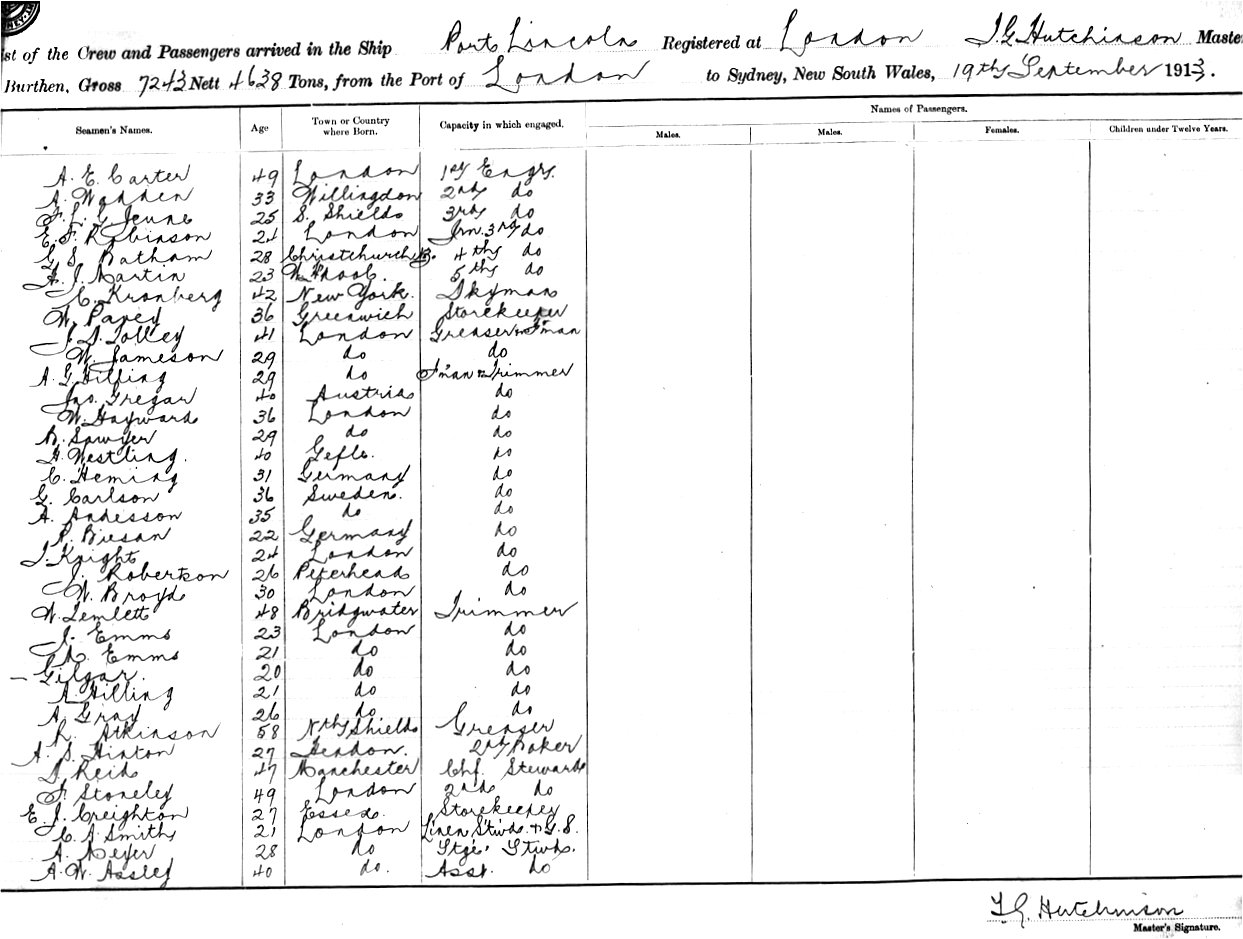 ist of the Crew and Passengers arrived in the Ship Port Lincoln Registered at London T G Hutchinson Master
Burthen, Gross 7243 Nett 4638 Tons, from the Port of London to Sydney, New South Wales, 19th September 1913.
Names of Passengers.
Seamen's Names. Age Town or Country where Born. Capacity in which engaged. Males. Males. Females. Children under Twelve Years.
A. E. Carter 49 London 1st Engr.
A. Wadden 33 Willingdon 2nd do
F. L. G. Jeune 25 S. Shields 3rd do
E. F. Robinson 24 London Jrn. 3rd do
G. S. Batham 28 Christchurch 4th do
A. J. Martin 23 5th do
C. Kronberg 42 New York. Dkyman
W. Pavey 36 Greenwich Storekeeper
J. D. Tolley 41 London Greaser F'man
W. Jameson 29 do do
A. G. Hilling 29 do F'man Trimmer
Jno. Gregar 40 Austria do
W. Hayward 36 London do
B. Sawyer 29 do do
H. Westling. 40 Gefle. do
C. Heming 31 Germany do
G. Carlson 36 Sweden. do
A. Andesson 35 do do
P. Biesan 22 Germany do
J. Knight 24 London do
J. Robertson 26 Peterhead do
W. Broyd 30 London do
W. Lemlett 48 Bridgwater Trimmer
J. Emms 23 London do
Emms 21 do do
— Gilgar. 20 do do
A. Hilling 21 do do
A. Gray 26 do do
R. Atkinson 58 Nth Shields Greaser
A. S. Hinton 27 Hendon. 2nd Baker
J. Reid 47 Manchester Chf. Steward
F. Stoneley 49 London 2nd do
E. J. Creighton 27 Essex. Storekeeper
C. J. Smith 21 London Linen Stwd. + G. S.
A. Meyer 28 do Stge. Stwd.
A. W. Assley 40 do. Asst. do
T G. Hutchinson
Master's Signature.